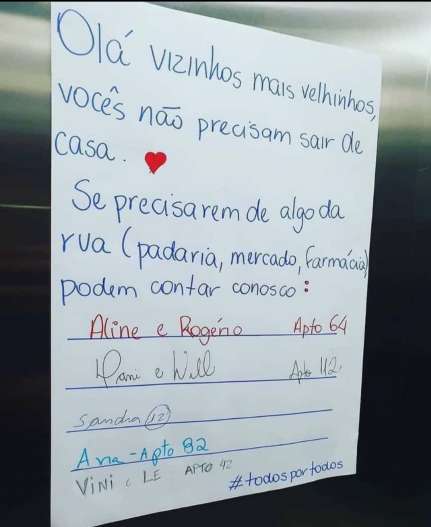 Olá vizinhos mais velhinhos,
vocês não precisam sair de
casa. ♥
Se precisarem de algo da
rua (padaria, mercado, farmácia)
podem contar conosco:
Aline e Rogério Apto 64
Dani e Will Apto 112
Sandra 12
Ana - Apto 82
Vini e LE APTO 42
#todosportodos